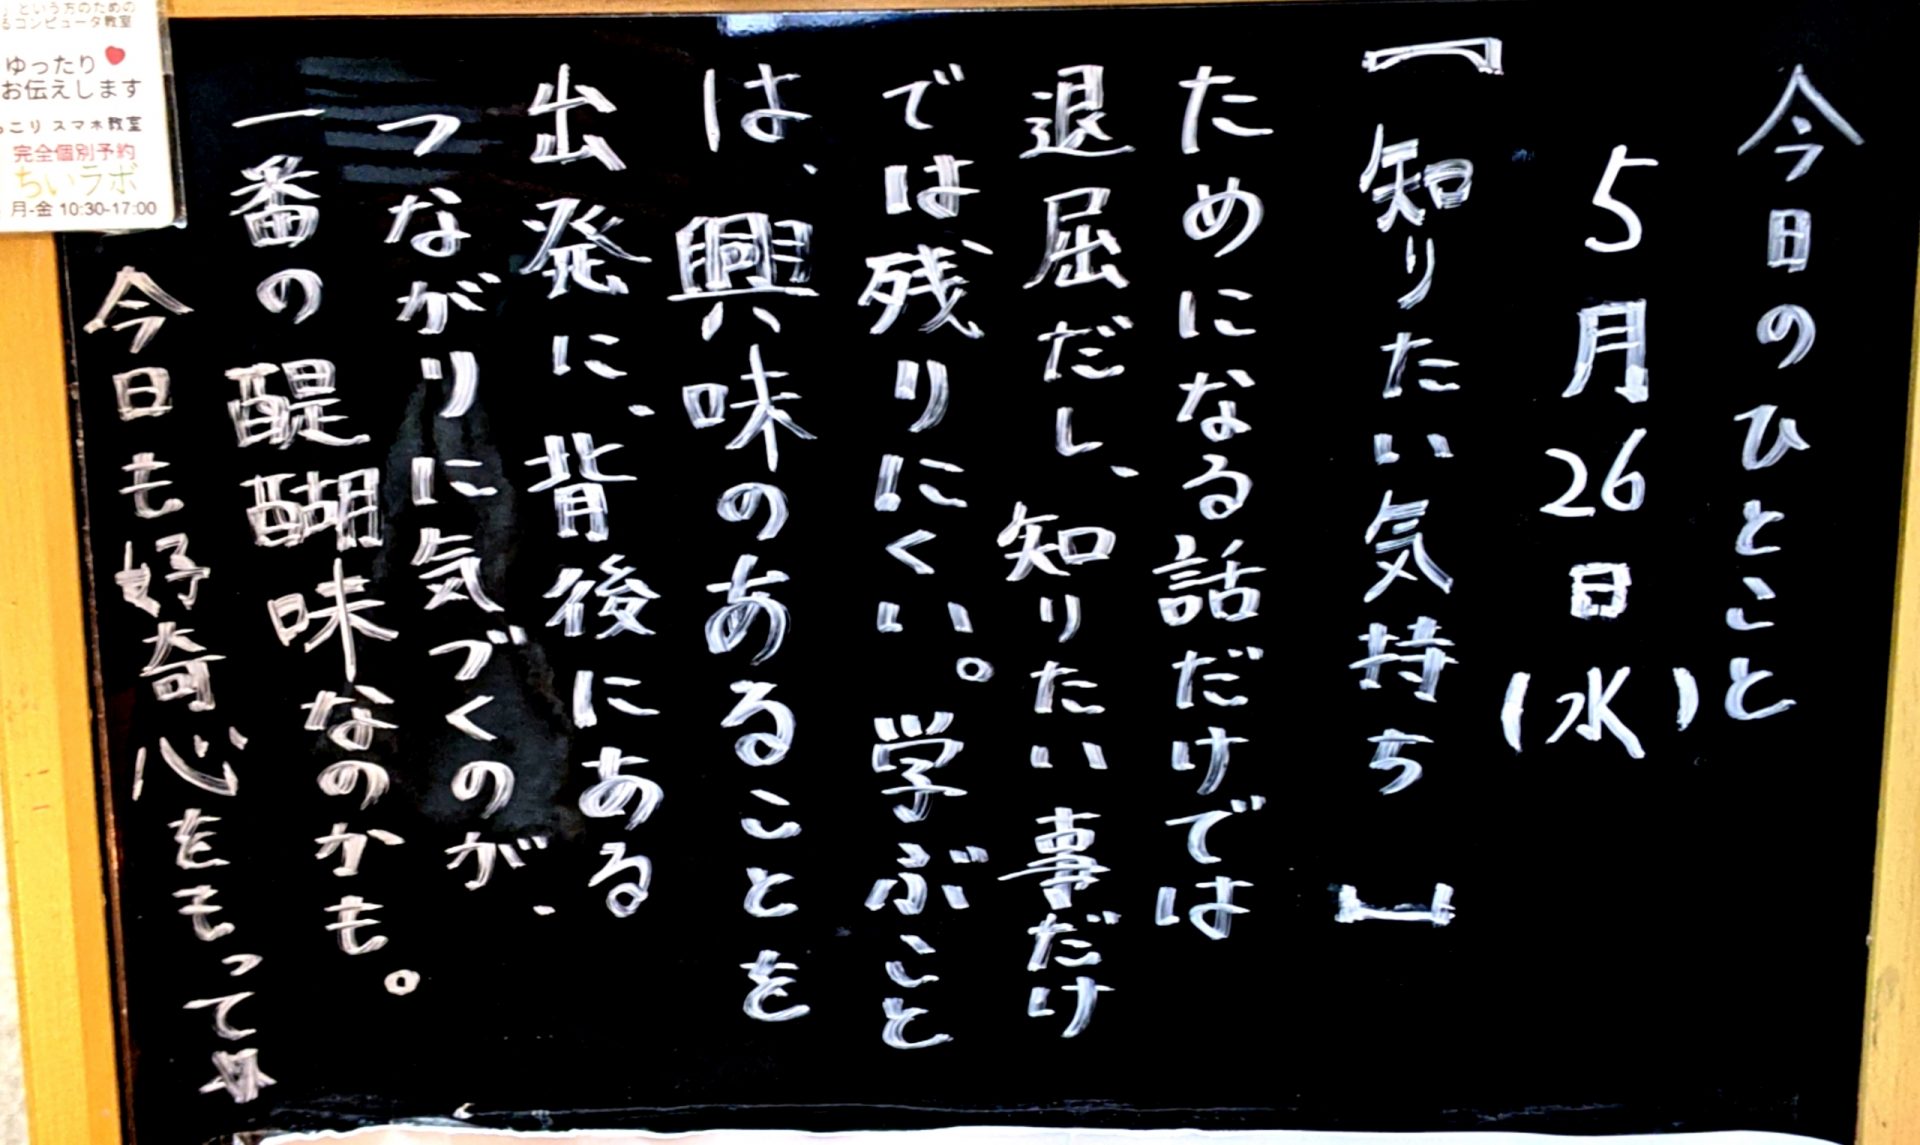 今日のひとこと
5月26日(水)
【知りたい気持ち】
ためになる話だけでは
退屈だし、知りたい事だけ
では残りにくい。学ぶこと
は、興味のあることを
出発に、背後にある
つながりに気づくのが、
一番の醍醐味なのかも。
今日も好奇心をもって☆
という方のための
るコンピュータ教室
ゆったり
お伝えします
っこり スマホ教室
完全個別予約
ちいラボ
月-金 10:30-17:00